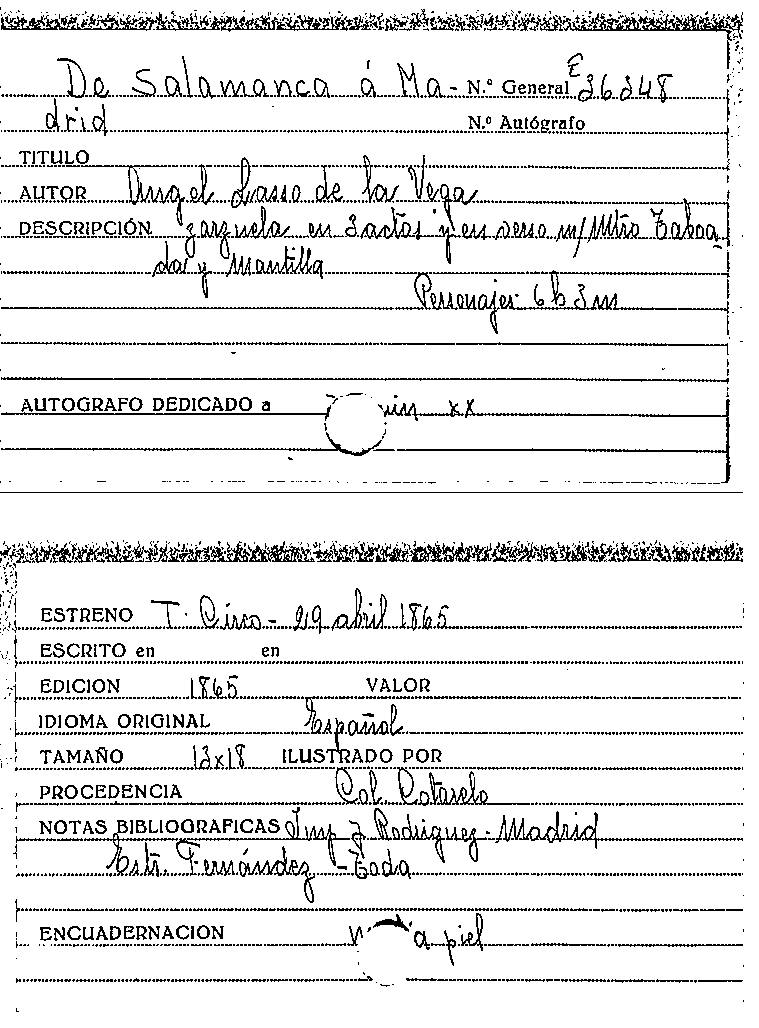 De Salamanca á Ma- N.º General E 36348
drid N.º Autógrafo
TITULO
AUTOR Angel Lasso de la Vega
DESCRIPCIÓN zarzuela en 3 actos y en verso m/ Mtro Taboa
da y Mantilla
Personajes- 6 h 3 m
AUTOGRAFO DEDICADO a xx
ESTRENO T. Circo - 29 abril 1865
ESCRITO en en
EDICION 1865 VALOR
IDIOMA ORIGINAL Español
TAMAÑO 13x18 ILUSTRADO POR
PROCEDENCIA Col. Cotarelo
NOTAS BIBLIOGRAFICAS Imp J. Rodriguez - Madrid
Estr. Fernández - Toda
ENCUADERNACION piel